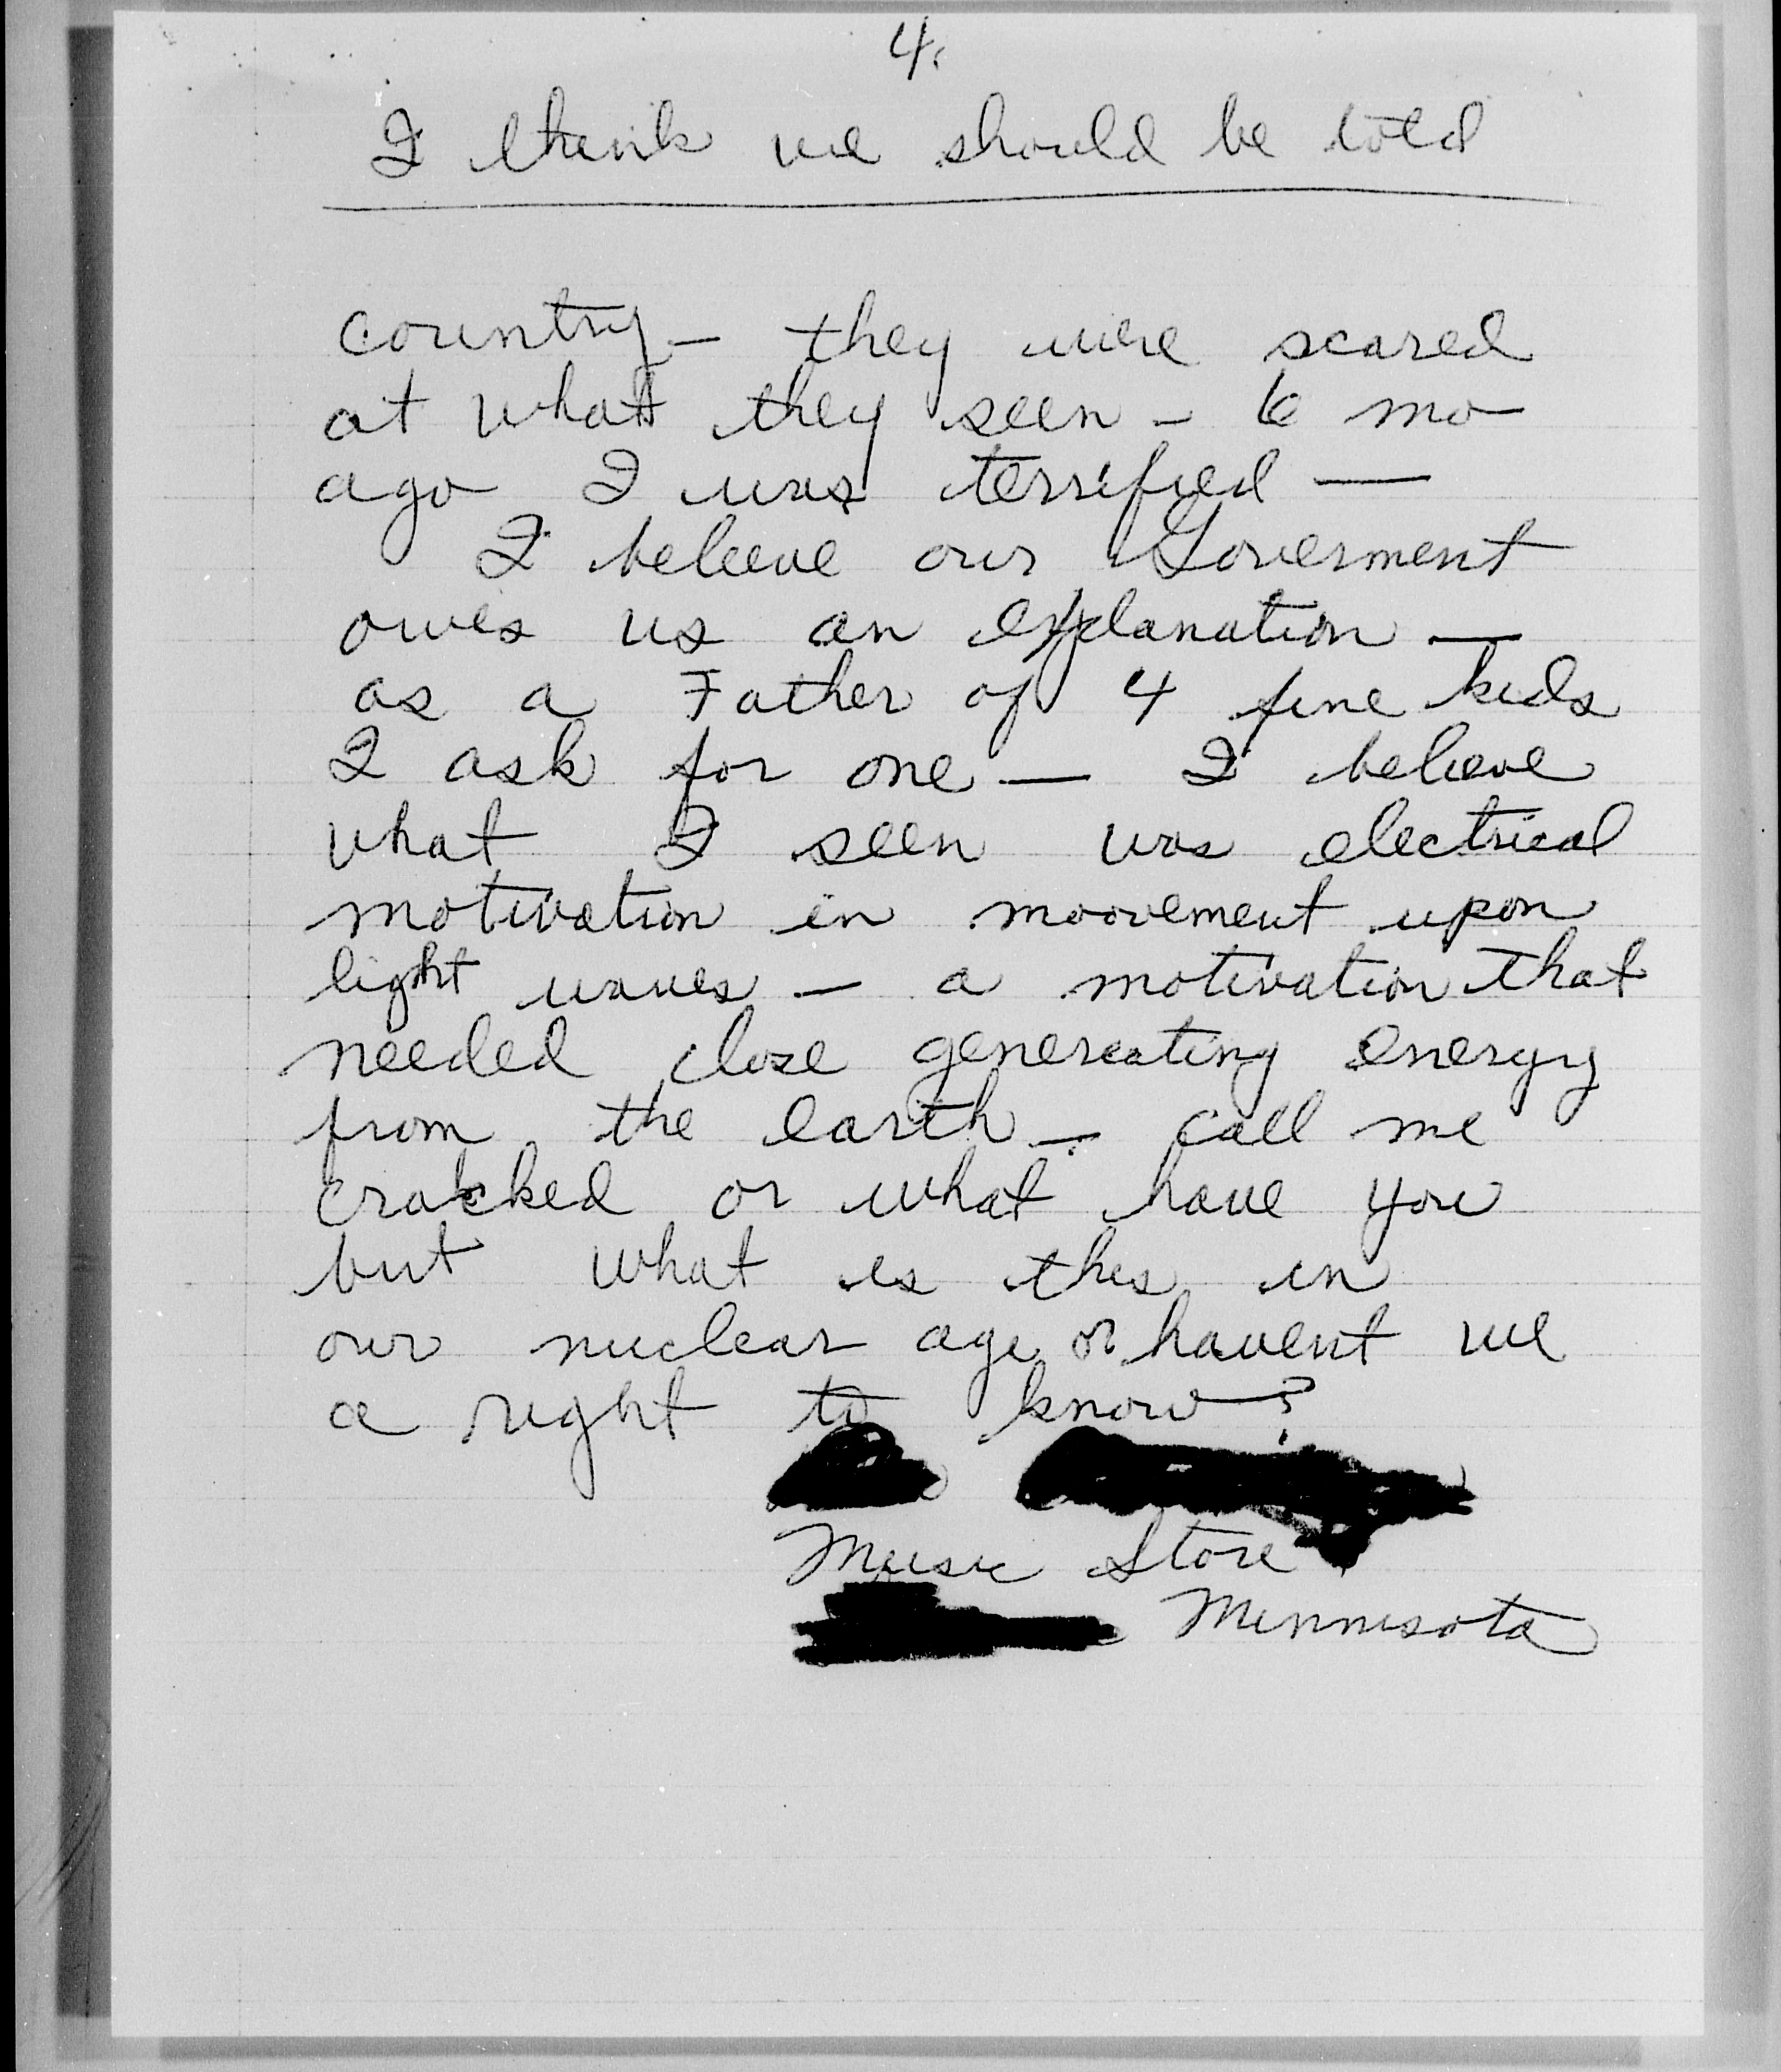 4.
I think we should be told
country – they were scared
at what they seen – 6 mo
ago I was terrified —
I beleeve our Goverment
owes us an explanation —
as a Father of 4 fine kids
I ask for one — I believe
what I seen was electrical
motivation in moovement upon
light waves – a motivation that
needed close genereating energy
from the earth – call me
cracked or what have you
but what is this in
our nuclear age or havent we
a right to know?
Music Store
Minnisota